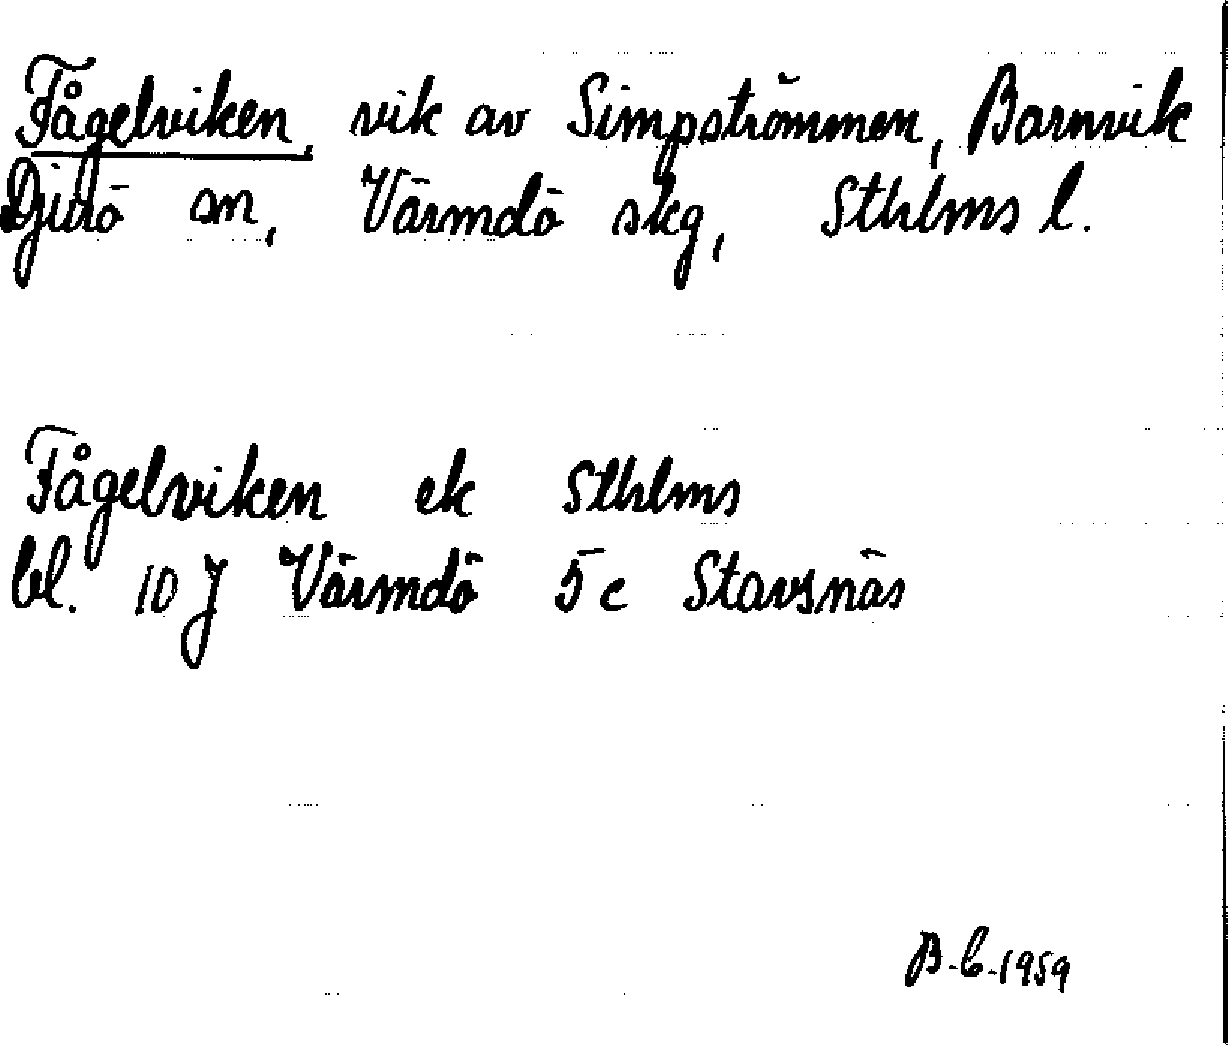 Fågelviken, vik av Simpströmmen, Barnvik
Djurö sn, Värmdö skg, Sthlms l.
Fågelviken ek Sthlms
bl. 10 J Värmdö 5 c Stavsnäs
B-C-1959